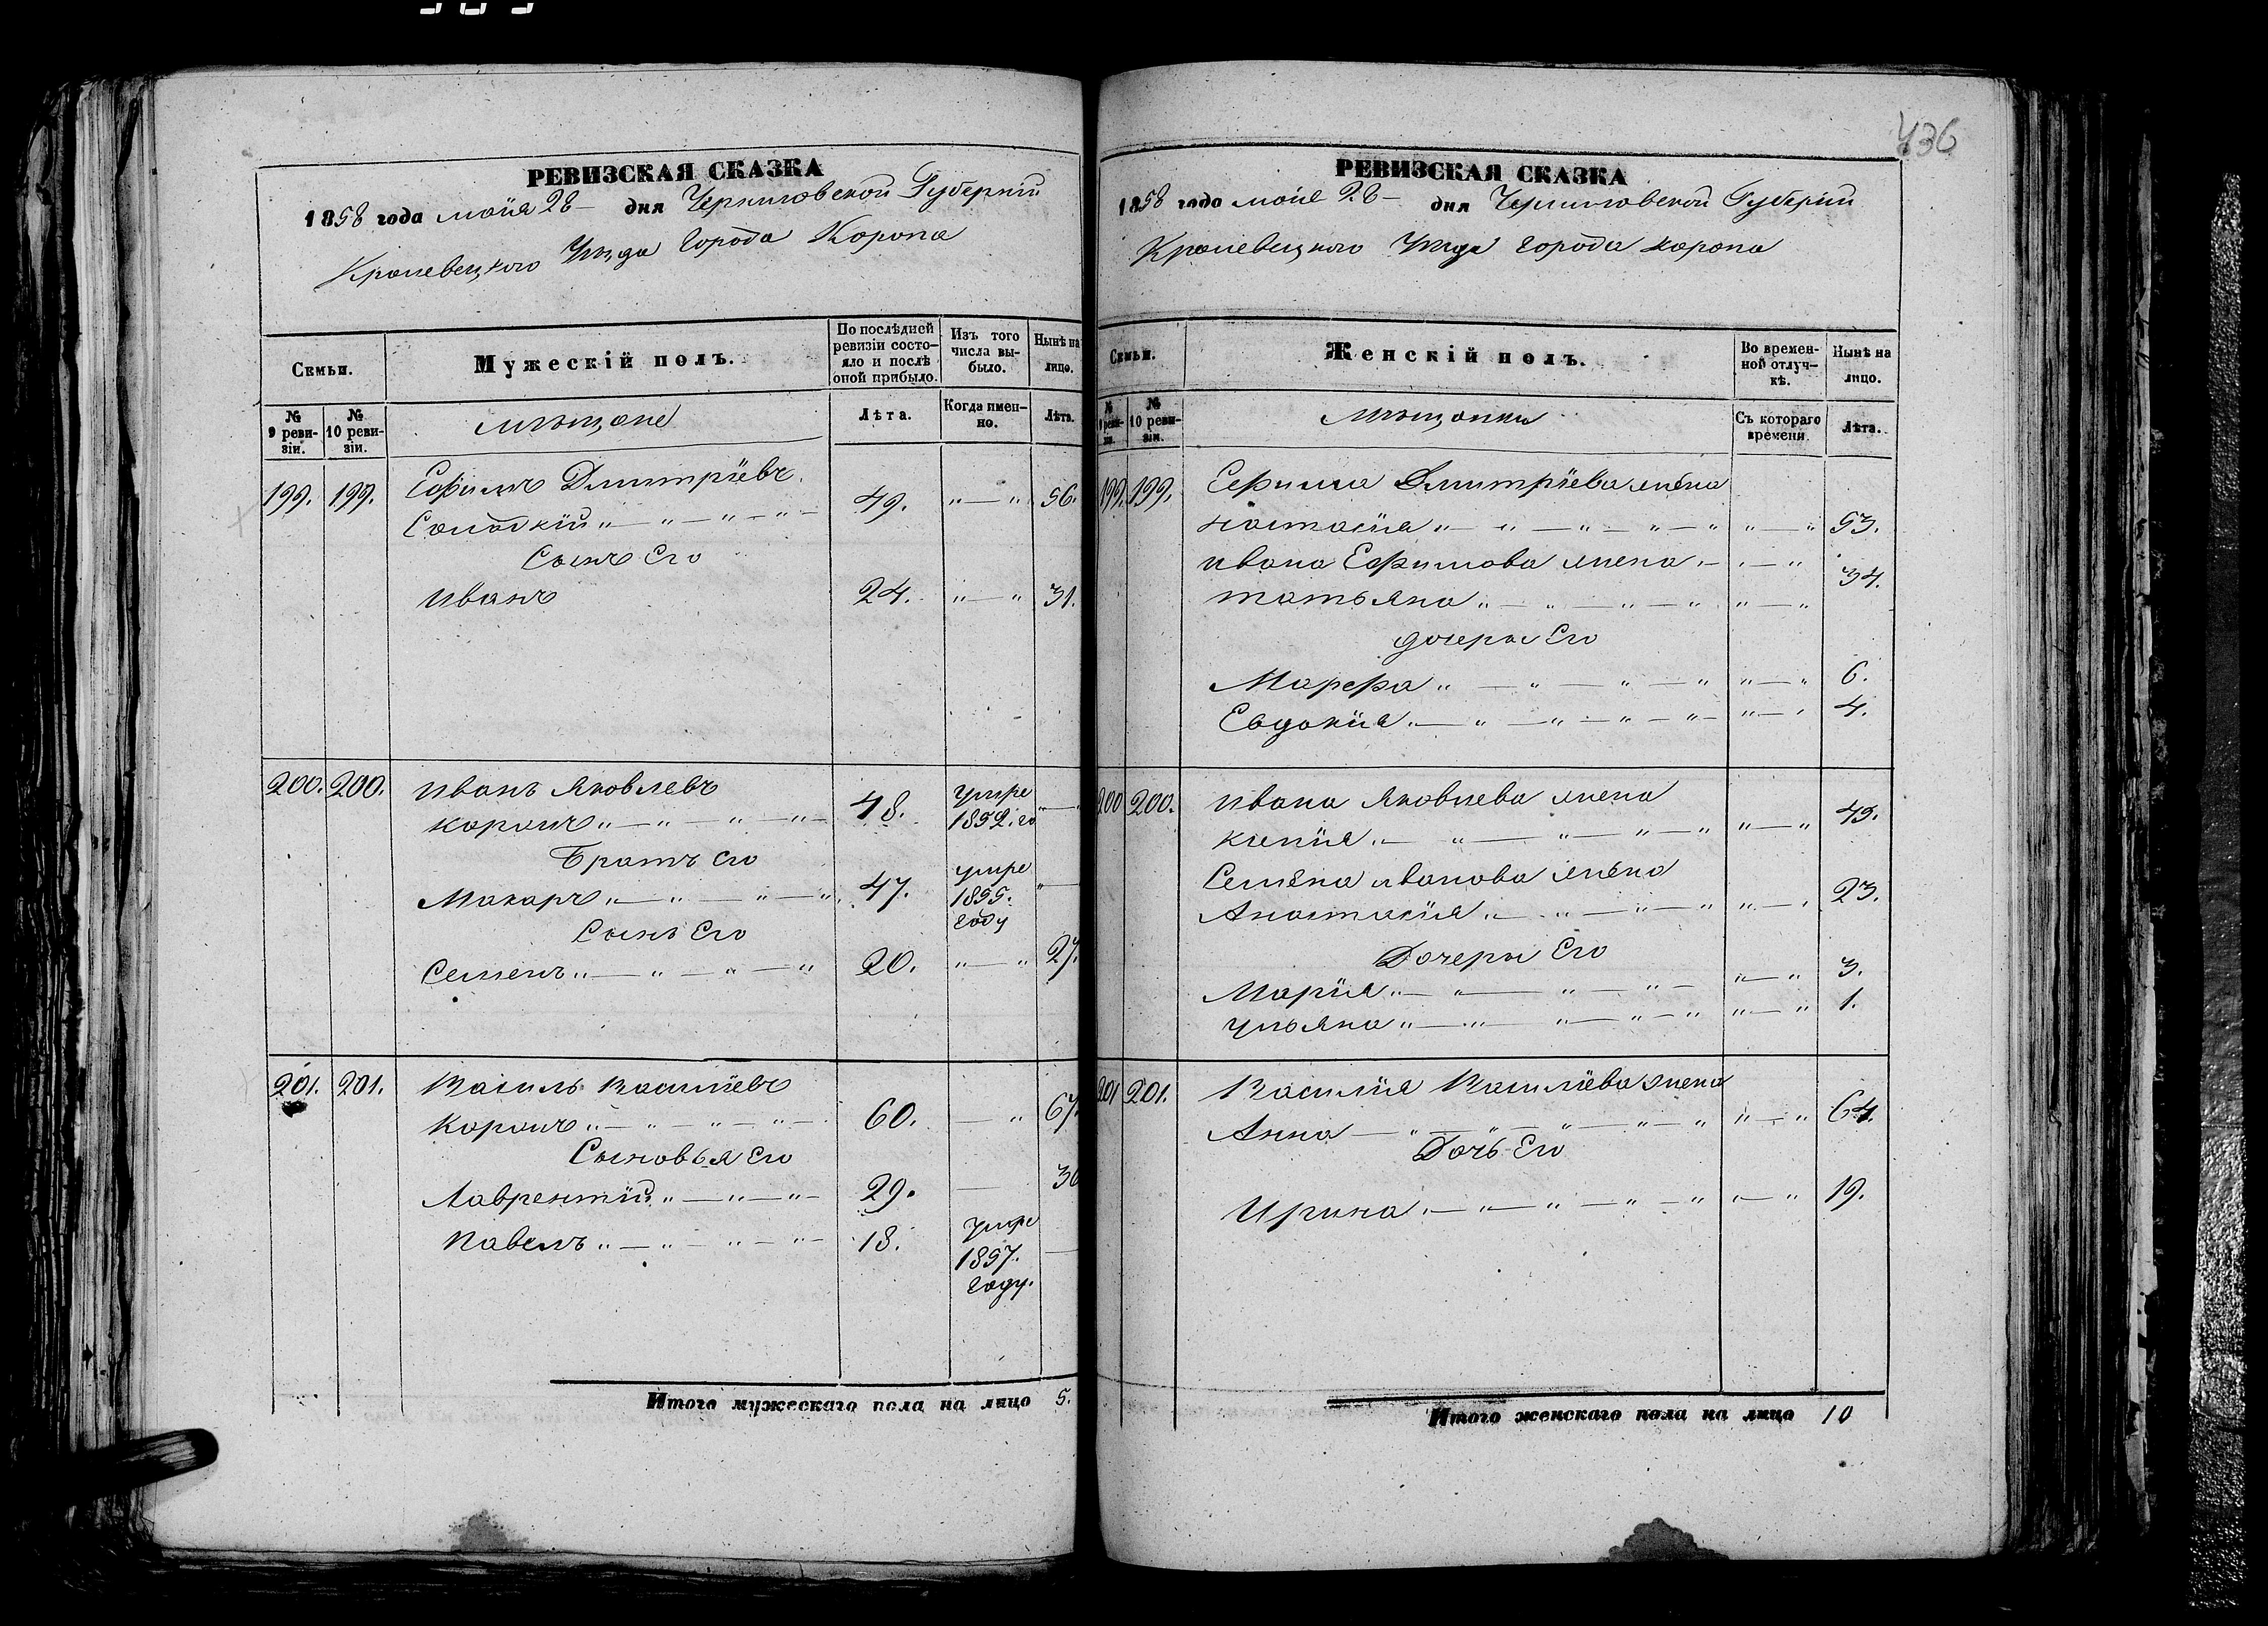 436
РЕВИЗСКАЯ СКАЗКА
1858 года маия 28 дня Черниговской Губерніи
Кролевецкого Уезда Города Коропа
Семьи.
Мужескій полъ.
По послѣдней ревизіи состояло и послѣ оной прибыло.
Изъ того числа выбыло.
Нынѣ на лицо.
№ 9 ревизіи.
№ 10 ревизіи.
мѣщане
Лѣта.
Когда именно.
Лѣта.
199. 199. Ефимъ Дмитріевъ
49. 56.
Сынъ Его
Иванъ 24. 31.
200. 200. Иванъ Яковлевъ
Коропъ 48. умре 1852. го
Братъ его
Макаръ 47. умре 1855. году
Сынъ Его
Семенъ 20. 27.
201. 201. Василь Василіевъ
Коропъ 60. 67.
Сыновья Его
Лаврентій 29. 36
Павелъ 18. умре 1857. году.
Итого мужескаго пола на лицо 5.
РЕВИЗСКАЯ СКАЗКА
1858 года маие 28 дня Черниговской Губерніи
Кролевецкого Уезда города коропа
Семьи.
Женскій полъ.
Во временной отлучкѣ.
Нынѣ на лицо.
№ 9 ревизіи.
№ 10 ревизіи.
мѣщанки
Съ котораго времени.
Лѣта.
199. 199. Ефима Дмитріева жена
настасия 53.
ивана Ефимова жена
татьяна 34.
дочеры Его
Марфа 6.
Евдокия 4.
200 200. ивана Яковлева жена
45.
Семена иванова жена
Анастасия 23.
Дочеры Его
Марія 3.
ульяна 1.
201 201. Василия Василіева жена
Анна 64.
Дочь Его
Ирина 19.
Итого женскаго пола на лицо 10